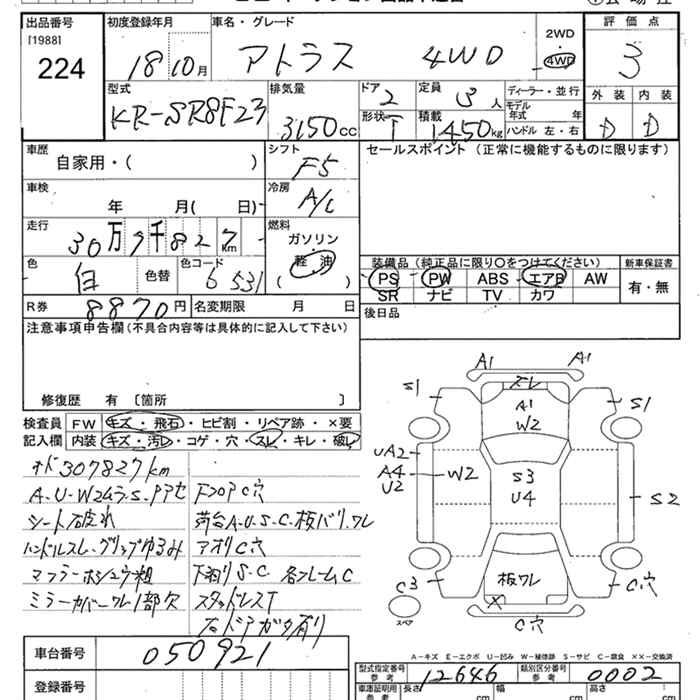 出品番号 初度登録年月 車名・グレード 2WD 評価点
[1988]
224 18 10月 アトラス 4WD 4WD 3
型式 排気量 ドア 定員 ディーラー・並行 外装 内装
KR-SR8F23 3150cc 2 3人 モデル年式 年 D D
形状 積載 1450kg ハンドル 左・右
車歴 シフト セールスポイント (正常に機能するものに限ります)
自家用・( ) F5
車検 冷房
年 月( 日) A/C
走行 燃料
30万7千827km ガソリン
軽油
( )
色 色替 色コード 装備品 (純正品に限り○をつけてください) 新車保証書
白 6 531 PS PW ABS エアB AW 有・無
SR ナビ TV カワ
R券 8870円 名変期限 月 日 後日品
注意事項申告欄 (不具合内容等は具体的に記入して下さい)
修復歴 有 [箇所 ]
検査員 FW キズ・飛石・ヒビ割・リペア跡・×要
記入欄 内装 キズ・汚レ・コゲ・穴・スレ・キレ・破レ
オド307827km
A・U・W2ムラ・S・Pアセ フロアC穴
シート破れ 荷台A・U・S・C・板バリ・ワレ
ハンドルスレ・グリップゆるみ アオリC穴
マフラーホシュウ粗 下廻りS・C 各フレームC
ミラーカバーワレ1部欠 スタッドレスT
右ドアガタ有り
A1 A1
S1 A1 S1
W2
UA2
A4 W2 S3 S2
U2 U4
C3 板ワレ C穴
スペア × C穴
A-キズ E-エクボ U-凹み W-補修跡 S-サビ C-腐食 ××-交換済
車台番号 050921
型式指定番号 参考 12646 類別区分番号 参考 0002
登録番号 車庫証明用 参考 長さ cm 幅 cm 高さ cm